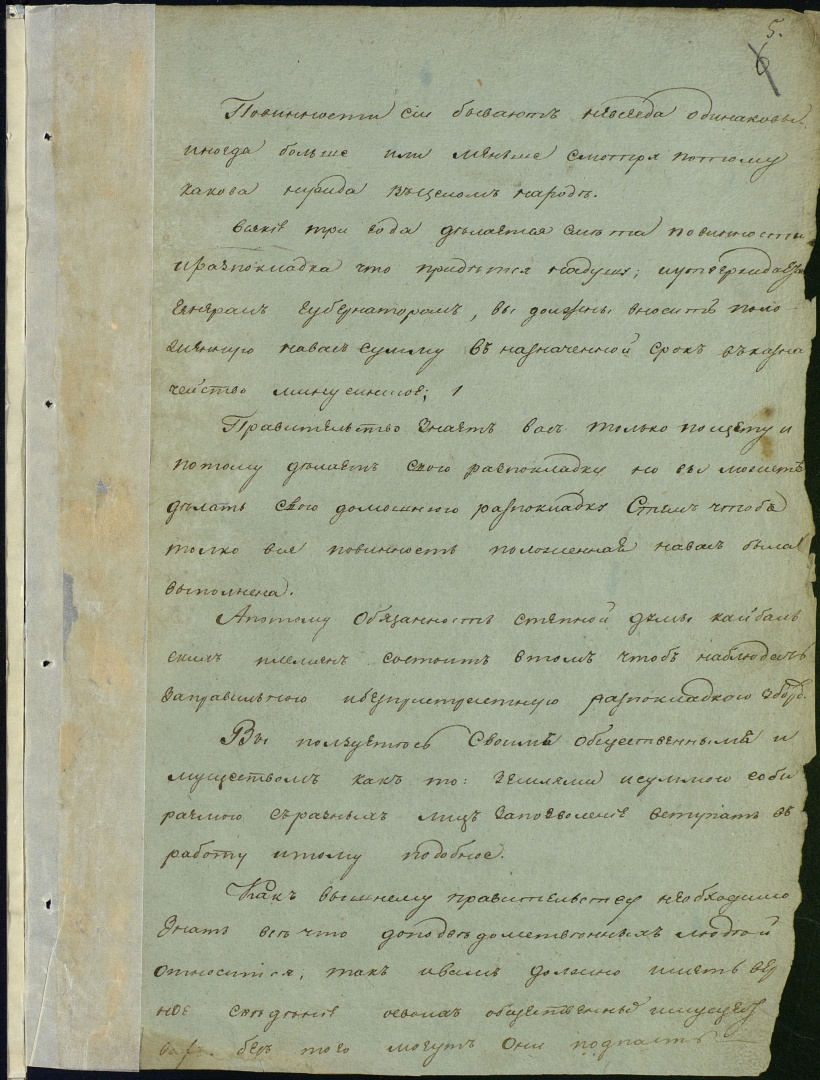 5.
6
Повинности сіи бываютъ невсегда одинаковы
иногда больше или менѣше смотря потому
какова нужда въцеломъ народѣ.
Всякіе три года дѣлается смѣта повинности
иразпокладка что придѣтся надушу; иутверждается
Генерал Губернаторомъ, вы должны вносить поло-
женную навасъ сумму въ назначенной срокъ въказна
чейство минусинское;
Правительство знаетъ васъ только посчету и
потому дѣлаетъ свою разпокладку но вы можете
дѣлать свою домошнюю разпокладку Стемъ чтобъ
толко вся повинность положенная навасъ была
выполнена.
Апотому Обязанность степной думы кайбаль
скихъ племенъ состоитъ втомъ чтобъ наблюдать
заправильною ибезпристрастною разпокладкою збору.
Вы ползуетѣсь Своими общественными и
муществомъ какъ то: землями исуммою соби
раемою съразныхъ лицъ запозволеніе вступать въ
работу итому подобное.
Какъ вышнему правительству необходимо
знать всѣ что доподвѣдомственныхъ людѣй
относится, такъ ивамъ должно имѣть вѣр
ное свѣдѣніе освоихъ общественныхъ имущест
вах. безъ того могутъ Они подпасть